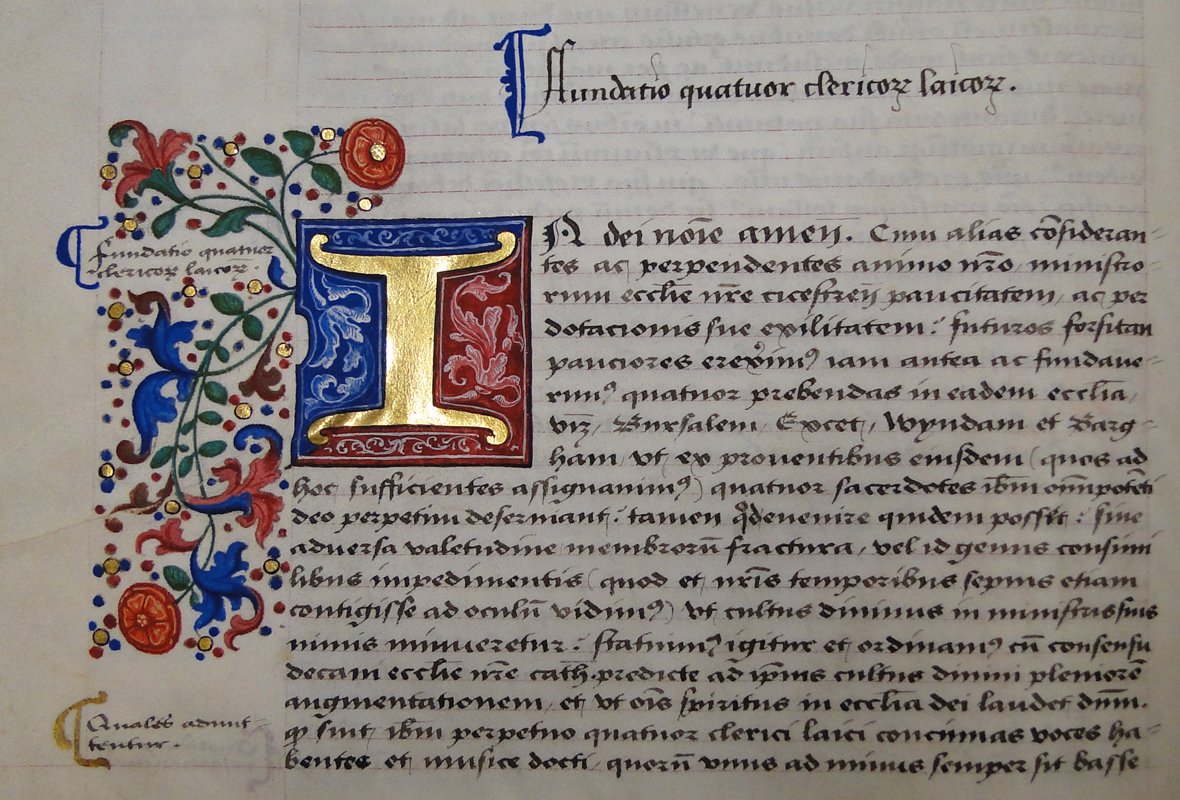 Fundatio quatuor clericoꝝ laicoꝝ.
Fundatio quatuor
clericoꝝ laicoꝝ.
IN dei noīe amen. Cum alias cōsideran-
tes ac perpendentes animo nr̄o, ministro-
rum eccl̄ie nr̄e cicestreñ paucitatem, ac per
dotacionis sue exilitatem: futuros forsitan
pauciores ereximꝰ iam antea ac fundaue-
rimꝰ quatuor prebendas in eadem eccl̄ia,
viꝫ, Bursalem, Excet, Wyndam et Barg-
ham, vt ex prouentibus eiusdem (quos ad
hoc sufficientes assignauimꝰ) quatuor sacerdotes ib̄m om̄ipotēti
deo perpetim deseruiant: tamen qd̄ euenire quidem possit: siue
aduersa valetudine membrorū fractura, vel id genus consimi
libus impedimentis (quod et nr̄is temporibus sepius etiam
contigisse ad oculū vidimꝰ) vt cultus diuinus in ministris suis
nimis minueretur: Statuimꝰ igitur et ordinamꝰ cū consensu
decani eccl̄ie nr̄e cath. predicte ad ip̄ius cultus diuini pleniorē
augmentationem, et vt oīs spiritus in eccl̄ia dei laudet dn̄m.
ꝙ sint ib̄m perpetuo quatuor clerici laici concinnas voces ha-
bentes et musice docti, quorū vnus ad minus semper sit basse
Quales admit-
tentur.